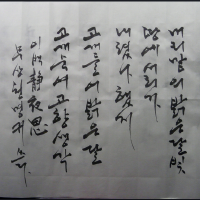 머리맡의 밝은달빛
땅에 서리가
내렸나 했지
고개들어 밝은달
고개숙여 고향생각
이백 靜夜思